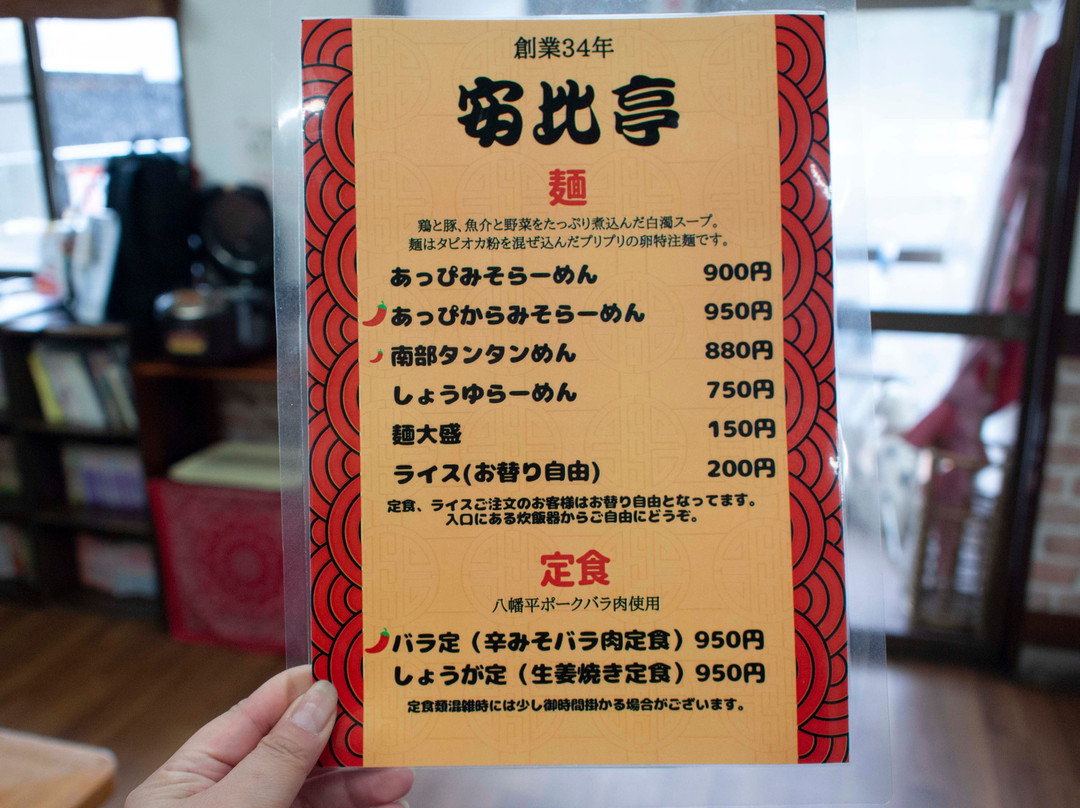 創業34年
安比亭
麺
鶏と豚、魚介と野菜をたっぷり煮込んだ白濁スープ。
麺はタピオカ粉を混ぜ込んだプリプリの卵特注麺です。
あっぴみそらーめん 900円
あっぴからみそらーめん 950円
南部タンタンめん 880円
しょうゆらーめん 750円
麺大盛 150円
ライス(お替り自由) 200円
定食、ライスご注文のお客様はお替り自由となってます。
入口にある炊飯器からご自由にどうぞ。
定食
八幡平ポークバラ肉使用
バラ定（辛みそバラ肉定食）950円
しょうが定（生姜焼き定食）950円
定食類混雑時には少し御時間掛かる場合がございます。